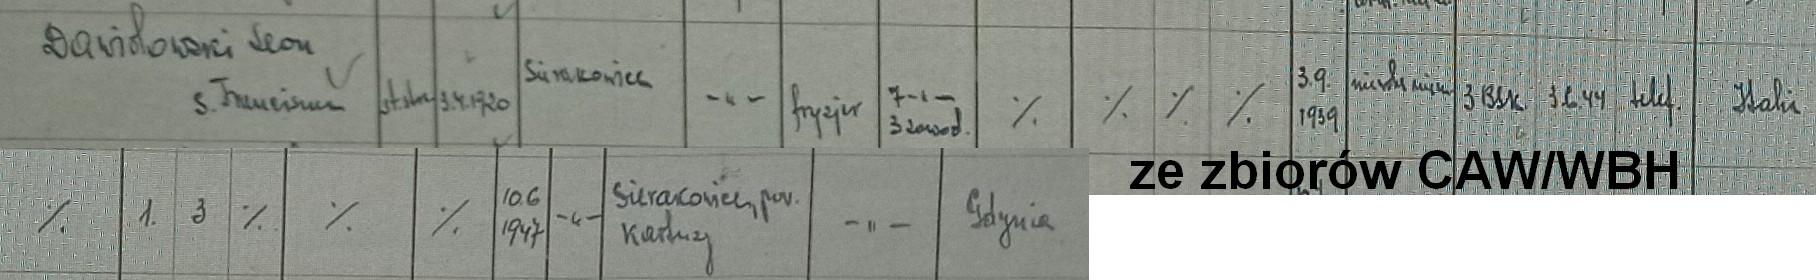 Dawidowski Leon
s. Franciszka
st. strz.
3.4.1920
Sierakowice
-"-
fryzjer
7 -"-
3 zawod.
%
%
%
%
3.9.
1939
3 BSK
3.6.44
telef.
Italia
%
1.
3
%
%
%
10.6
1947
-"-
Sierakowice, pow.
Kartuzy
-"-
Gdynia
ze zbiorów CAW/WBH